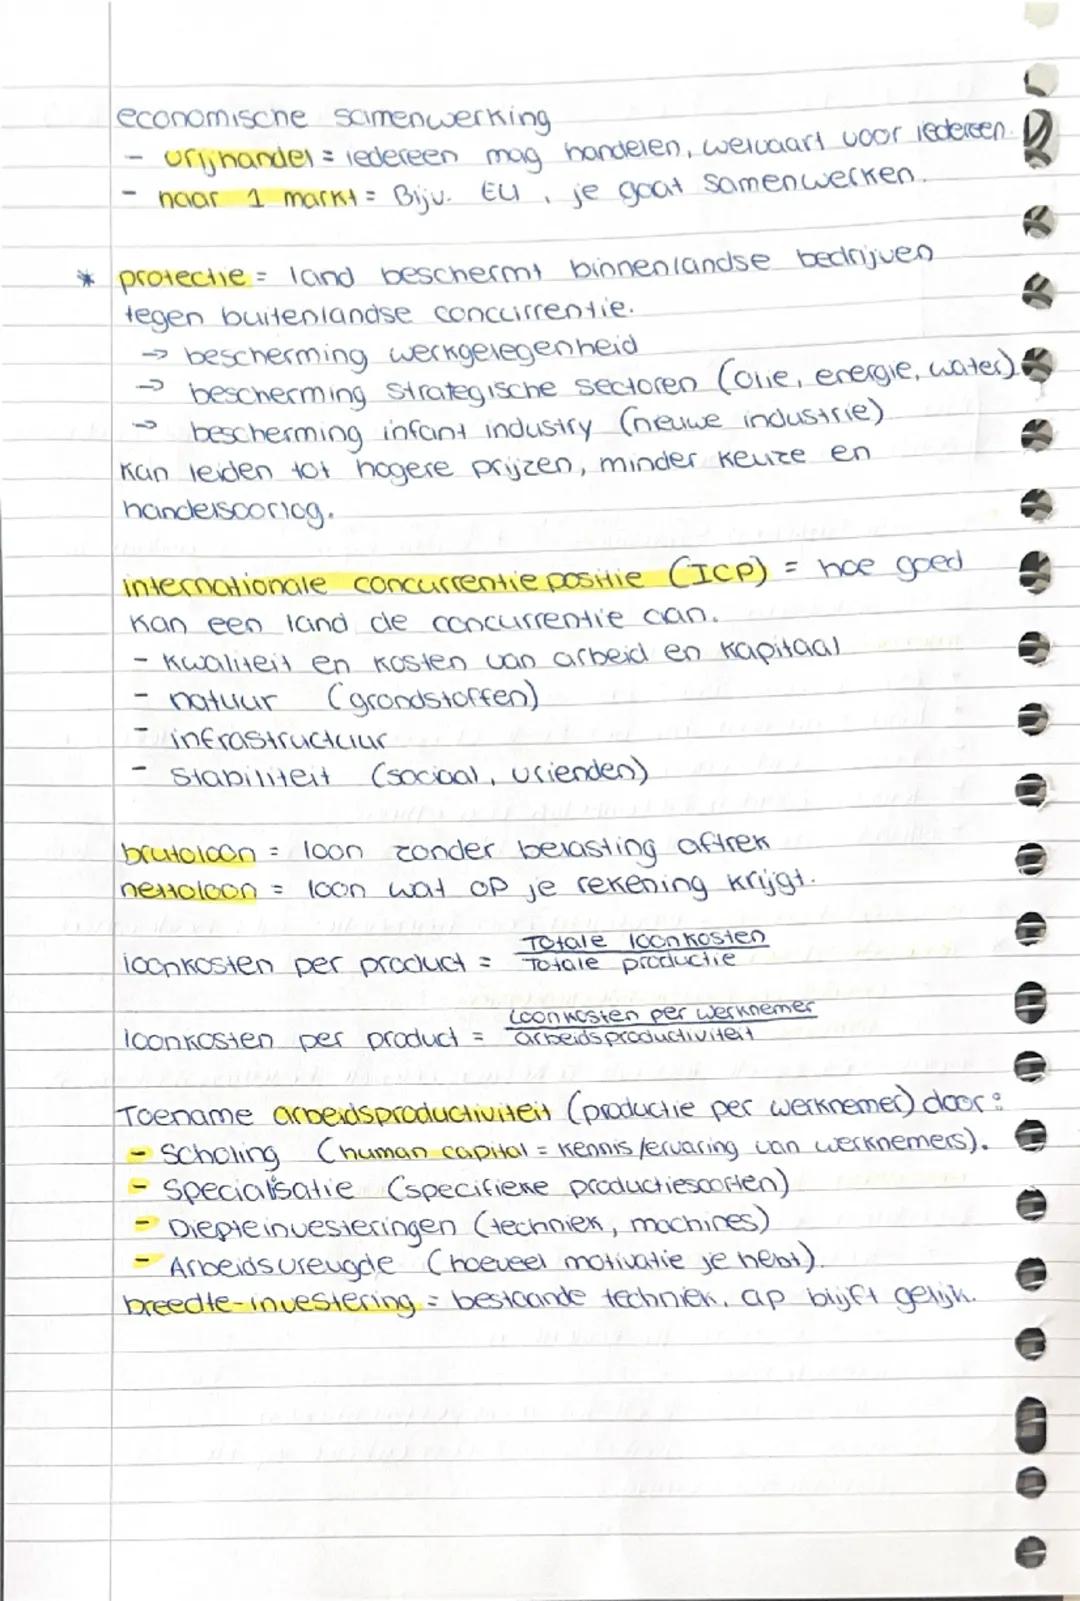 economische samenwerking
- vrijhandel = iedereen mag handelen, welvaart voor iedereen.
- naar 1 markt = Bijv. EU, je gaat samenwerken.
* protectie = land beschermt binnenlandse bedrijven
tegen buitenlandse concurrentie.
→ bescherming werkgelegenheid
→ bescherming strategische sectoren (olie, energie, water).
→ bescherming infant industry (nieuwe industrie)
Kan leiden tot hogere prijzen, minder keuze en
handelsoorlog.
internationale concurrentie positie (ICP) = hoe goed
kan een land de concurrentie aan.
- kwaliteit en kosten van arbeid en kapitaal
- natuur (grondstoffen)
- infrastructuur
- stabiliteit (sociaal, vrienden)
brutoloon = loon zonder belasting aftrek
nettoloon = loon wat op je rekening krijgt.
loonkosten per product = Totale loonkosten
Totale productie
loonkosten per product = Loonkosten per werknemer
arbeidsproductiviteit
Toename arbeidsproductiviteit (productie per werknemer) door:
- Scholing (human capital = kennis/ervaring van werknemers).
- Specialisatie (specifieke productiesoorten)
- Diepteinvesteringen (techniek, machines)
- Arbeidsvreugde (hoeveel motivatie je hebt).
breedte-investering = bestaande techniek, ap blijft gelijk.